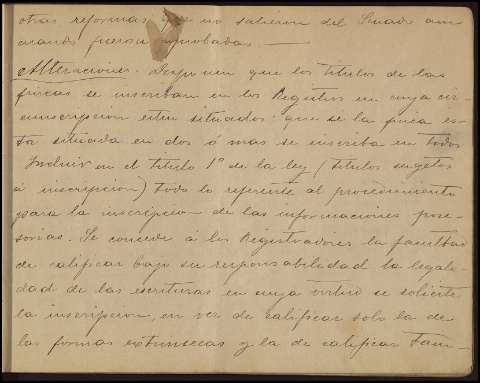 otras reformas que no salieron del Senado aun
cuando fueron aprobadas. —
Alteraciones. Disponen que los títulos de las
fincas se inscriban en los Registros en cuya cir-
cunscripcion esten situados: que si la finca es-
ta situada en dos ó mas se inscriba en todos
Incluir en el titulo 1º de la ley (titulos sugetos
á inscripcion) todo lo referente al procedimiento
para la inscripcion de las informaciones pose-
sorias. Se concede á los Registradores la facultad
de calificar bajo su responsabilidad la legali-
dad de las escrituras en cuya virtud se solicite
la inscripcion, en vez de calificar solo la de
las formas extrinsecas y la de calificar tam-